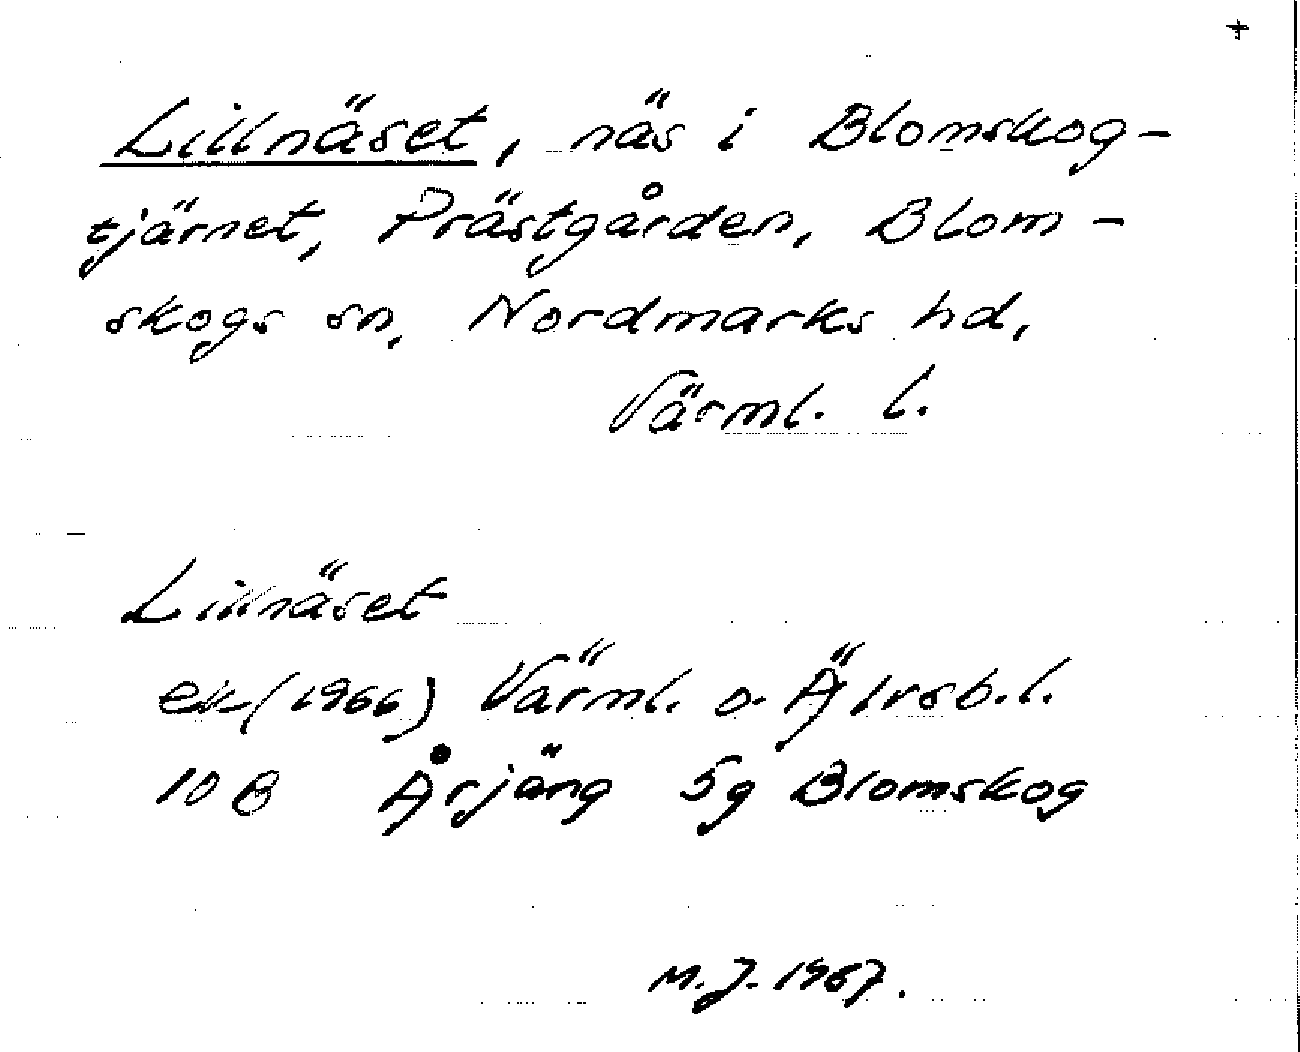 +
Lillnäset, näs i Blomskog-
tjärnet, Prästgården, Blom-
skogs sn, Nordmarks hd,
Värml. l.
Lillnäset
ek (1966) Värml. o. Älvsb. l.
10 B Årjäng 5g Blomskog
M.J. 1967.